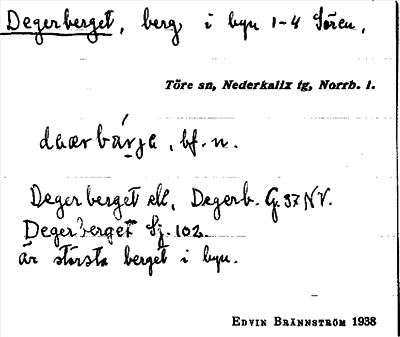 Degerberget, berg i byn 1-4 Sören,
Töre sn, Nederkalix tg, Norrb. l.
dæærbä́rje, bf. n.
Degerberget ell. Degerb. G. 37 NV.
Degerberget Sj. 102
är största berget i byn.
EDVIN BRÄNNSTRÖM 1938